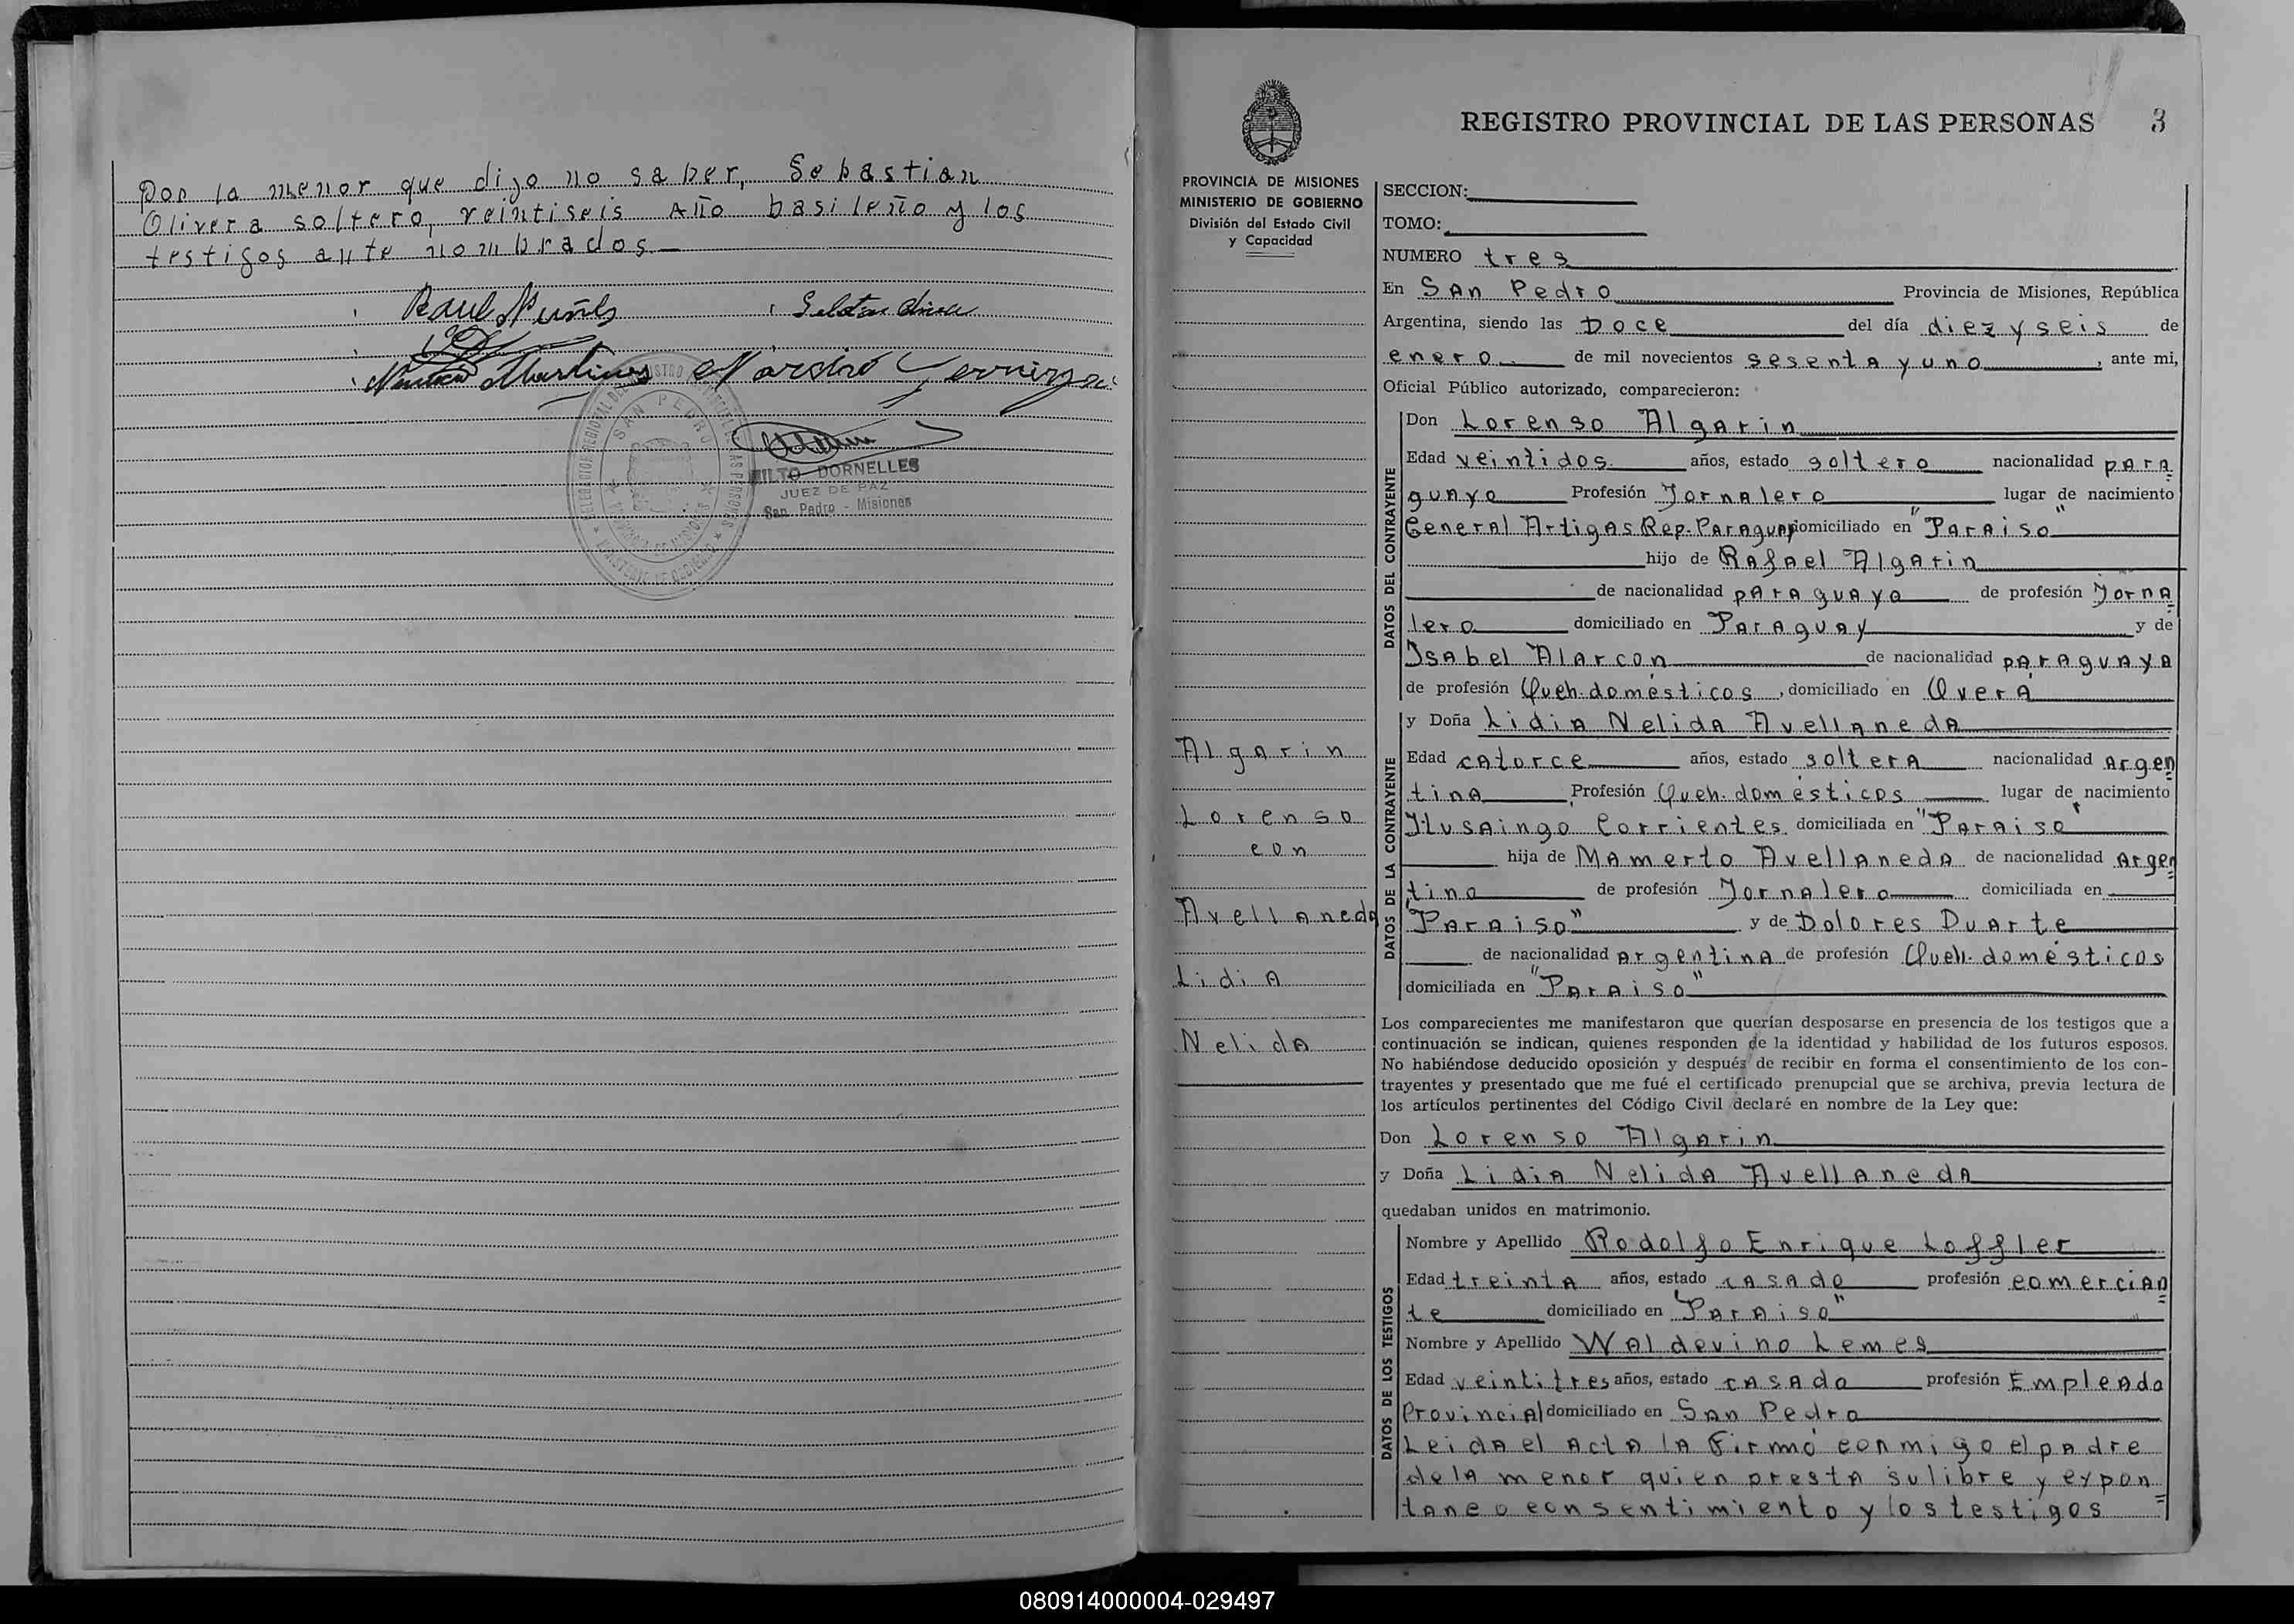 Por la menor que dijo no saber, Sebastian
Olivera soltero, veintiseis Año basileño y los
testigos ante nombrados.—
Raul Nuñes
Martines
SAN PEDRO
MINISTERIO DE GOBIERNO
DORNELLES
JUEZ DE PAZ
San Pedro - Misiones
REGISTRO PROVINCIAL DE LAS PERSONAS 3
PROVINCIA DE MISIONES
MINISTERIO DE GOBIERNO
División del Estado Civil
y Capacidad
Algarin
Lorenso
con
Avellaneda
Lidia
Nelida
SECCION:
TOMO:
NUMERO tres
En San Pedro Provincia de Misiones, República
Argentina, siendo las Doce del día diez y seis de
enero de mil novecientos sesenta y uno, ante mi,
Oficial Público autorizado, comparecieron:
DATOS DEL CONTRAYENTE
Don Lorenso Algarin
Edad veintidos años, estado soltero nacionalidad para=
guayo Profesión Jornalero lugar de nacimiento
General Artigas Rep. Paraguay domiciliado en "Paraiso"
hijo de Rafael Algarin
de nacionalidad paraguayo de profesión Jorna=
lero domiciliado en Paraguay y de
Isabel Alarcon de nacionalidad paraguaya
de profesión Queh. domésticos, domiciliado en Overá
DATOS DE LA CONTRAYENTE
y Doña Lidia Nelida Avellaneda
Edad catorce años, estado soltera nacionalidad Argen=
tina Profesión Queh. domésticos lugar de nacimiento
Itusaingo Corrientes domiciliada en "Paraiso"
hija de Mamerto Avellaneda de nacionalidad Argen=
tino de profesión Jornalero domiciliada en
"Paraiso" y de Dolores Duarte
de nacionalidad argentina de profesión Queh. domésticos
domiciliada en "Paraiso"
Los comparecientes me manifestaron que querían desposarse en presencia de los testigos que a
continuación se indican, quienes responden de la identidad y habilidad de los futuros esposos.
No habiéndose deducido oposición y después de recibir en forma el consentimiento de los con-
trayentes y presentado que me fué el certificado prenupcial que se archiva, previa lectura de
los artículos pertinentes del Código Civil declaré en nombre de la Ley que:
Don Lorenso Algarin
y Doña Lidia Nelida Avellaneda
quedaban unidos en matrimonio.
DATOS DE LOS TESTIGOS
Nombre y Apellido Rodolfo Enrique Loffler
Edad treinta años, estado casado profesión comercian=
te domiciliado en "Paraiso"
Nombre y Apellido Waldevino Lemes
Edad veintitres años, estado casado profesión Empleado
Provincial domiciliado en San Pedro
Leida el acta la firmó conmigo el padre
de la menor quien presta su libre y expon=
taneo consentimiento y los testigos
080914000004-029497